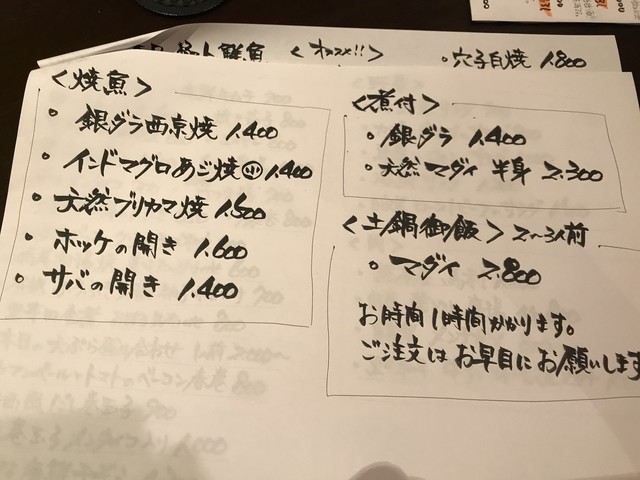 鮮魚 <オススメ!!> ・穴子白焼 1.800
<焼魚>
・銀ダラ西京焼 1.400
・インドマグロあご焼 小 1.400
・天然ブリカマ焼 1.500
・ホッケの開き 1.600
・サバの開き 1.400
<煮付>
・銀ダラ 1.400
・天然マダイ 半身 2.300
<土鍋御飯> 2~3人前
・マダイ 2.800
お時間1時間かかります。
ご注文はお早目にお願いします